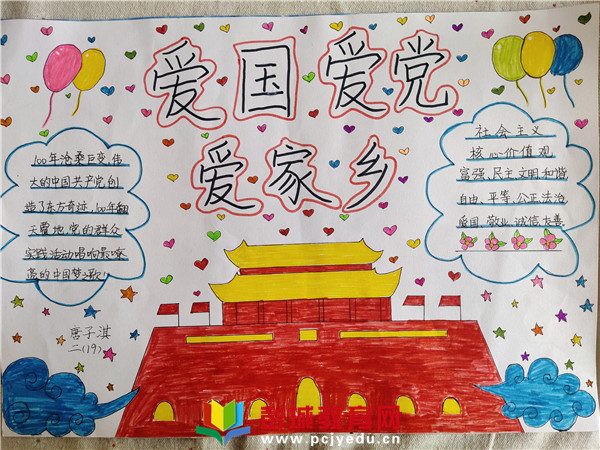 爱国爱党
爱家乡
100年沧桑巨变,伟
大的中国共产党创
造了东方奇迹,100年翻
天覆地,党的群众
实践活动唱响最嘹
亮的中国梦之歌!
社会主义
核心价值观
富强、民主、文明、和谐
自由、平等、公正、法治
爱国、敬业、诚信、友善
唐子淇
二(19)
www.pcjyedu.cn